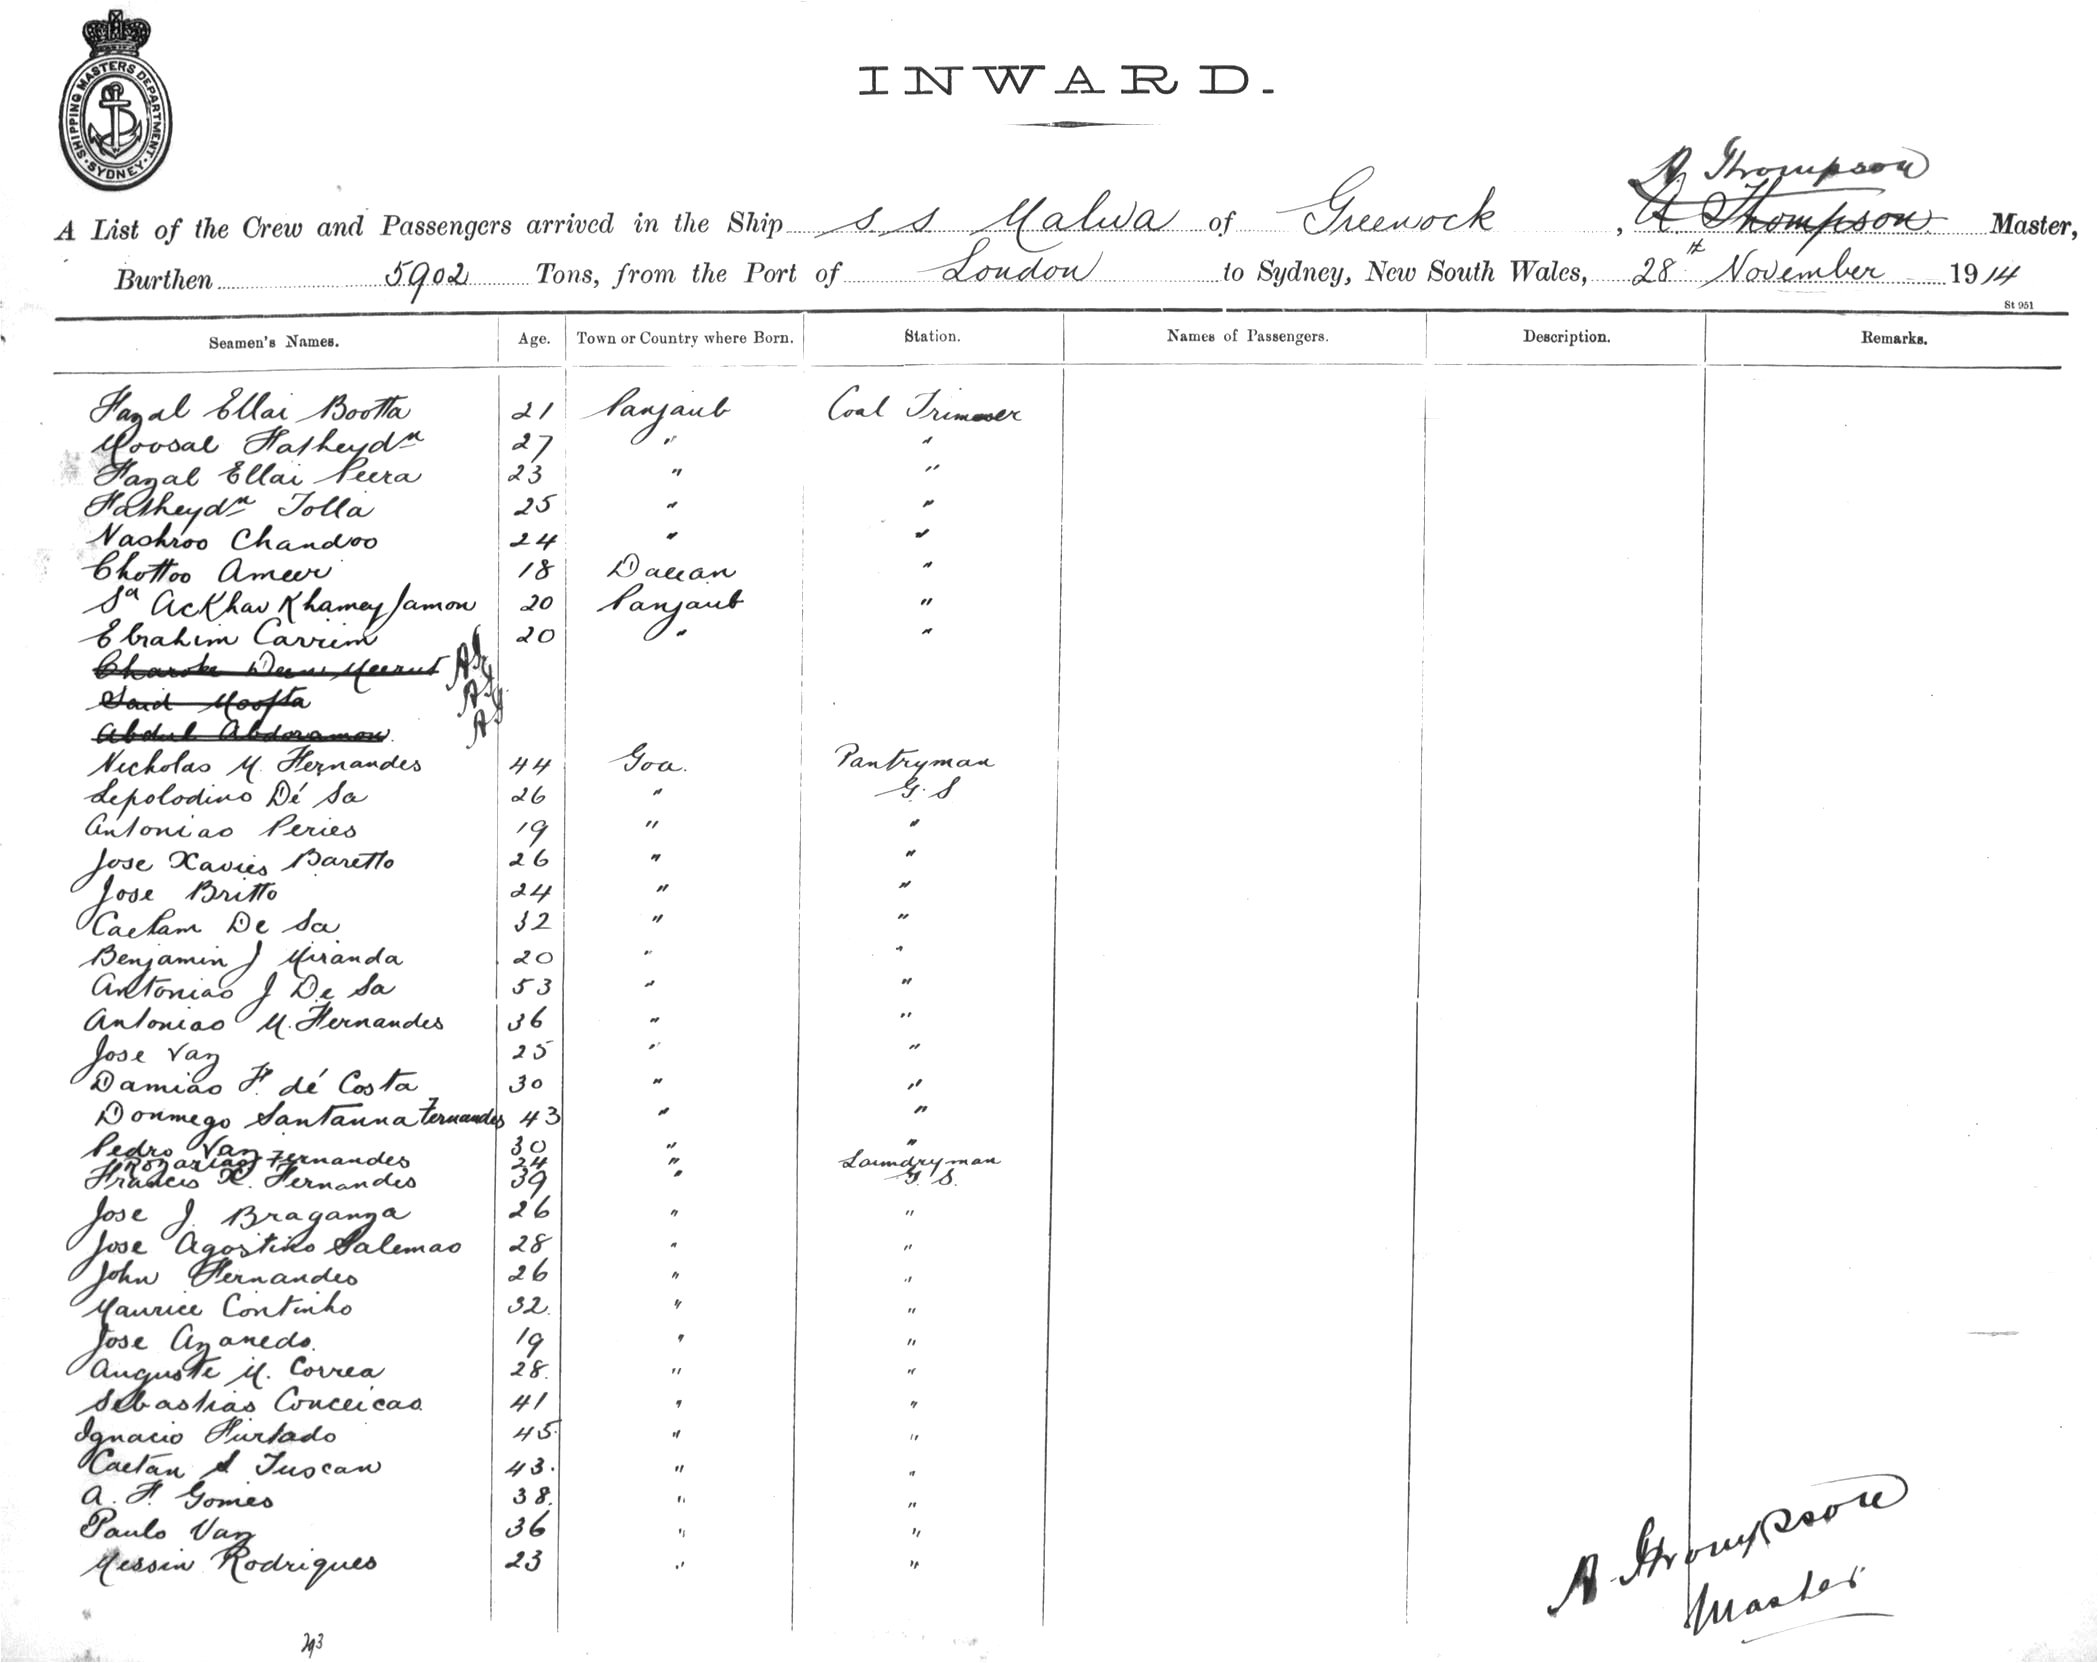 SHIPPING MASTERS DEPARTMENT
SYDNEY
INWARD.
A. Thompson
A List of the Crew and Passengers arrived in the Ship S. S. Malwa of Greenock, A Thompson Master,
Burthen 5902 Tons, from the Port of London to Sydney, New South Wales, 28th November 1914
St 951
Seamen's Names. Age. Town or Country where Born. Station. Names of Passengers. Description. Remarks.
Fazal Ellai Bootta 21 Panjaub Coal Trimmer
Moosal Fatheydn 27 " "
Fazal Ellai Peera 23 " "
Fatheydn Tolla 25 " "
Nashroo Chandoo 24 " "
Chottoo Ameer 18 Daccan "
Sa Ackhav Khamey Jamon 20 Panjaub "
Ebrahim Carrim 20 " "
Deen Meerut
Said Moosta
Abdul Abdoramon
Nicholas M. Fernandes 44 Goa. Pantryman
Lepolodino Dé Sa 26 " G. S
Antoniao Peries 19 " "
Jose Xavies Baretto 26 " "
Jose Britto 24 " "
Caetam De Sa 32 " "
Benjamin J Miranda 20 " "
Antoniao J De Sa 53 " "
Antoniao M. Fernandes 36 " "
Jose Vaz 25 " "
Damiao F. dé Costa 30 " "
Donmego Santanna Fernandes 43 " "
Pedro Vaz 30 " "
Rozariao Fernandes 24 " Laundryman
Francis X. Fernandes 39 " G. S.
Jose J. Braganza 26 " "
Jose Agostino Salemao 28 " "
John Fernandes 26 " "
Maurice Continho 32 " "
Jose Azanedo. 19 " "
Auguste M. Correa 28. " "
Sebastiao Conceicao 41 " "
Ignacio Furtado 45. " "
Caetan S Tuscan 43. " "
A. F. Gomes 38. " "
Paulo Vaz 36 " "
Messin Rodrigues 23 " "
A. Thompson
Master